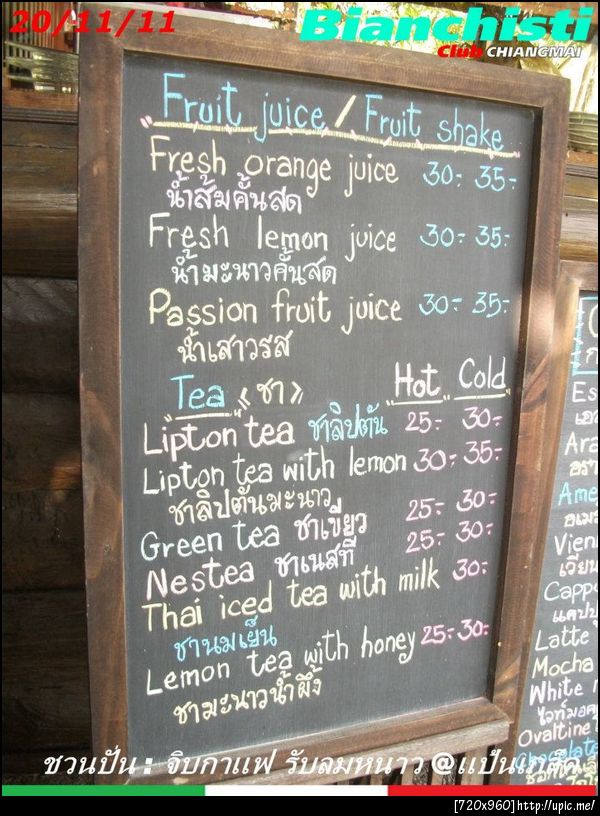 20/11/11
Bianchisti
Club CHIANGMAI
Fruit juice / Fruit shake
Fresh orange juice 30.- 35.-
น้ำส้มคั้นสด
Fresh lemon juice 30.- 35.-
น้ำมะนาวคั้นสด
Passion fruit juice 30.- 35.-
น้ำเสาวรส
Tea《ชา》 Hot Cold
Lipton tea ชาลิปตัน 25.- 30.-
Lipton tea with lemon 30.- 35.-
ชาลิปตันมะนาว
Green tea ชาเขียว 25.- 30.-
Nestea ชาเนสที 25.- 30.-
Thai iced tea with milk 30.-
ชานมเย็น
Lemon tea with honey 25.- 30.-
ชามะนาวน้ำผึ้ง
Es
Ara
Ame
อเมร
Vienn
เวียน
Cappu
คาปปู
Latte
Mocha
White
ไวท์มอค
Ovaltine
Chocolate
ชวนปั่น : จิบกาแฟ รับลมหนาว @
[720x960] http://upic.me/